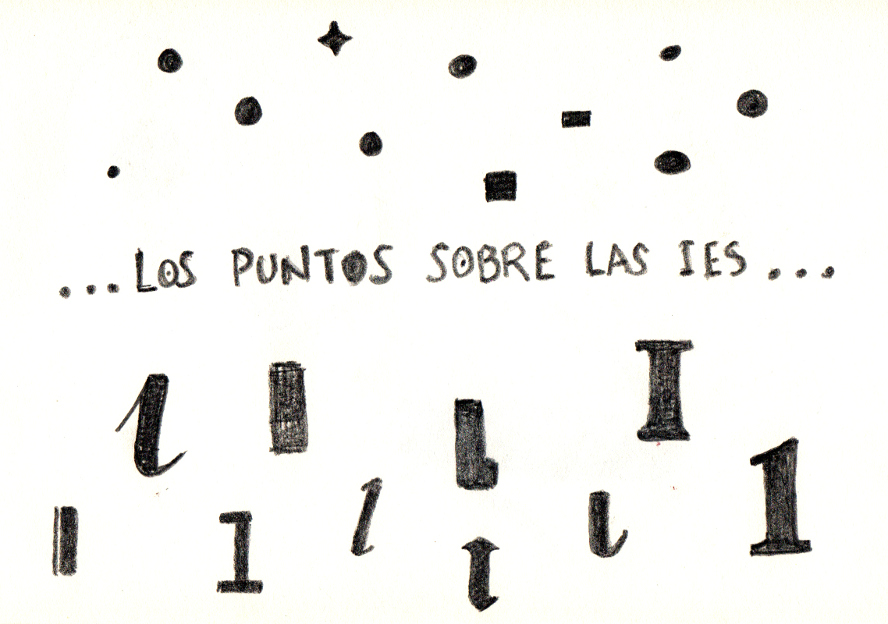 ...LOS PUNTOS SOBRE LAS IES...